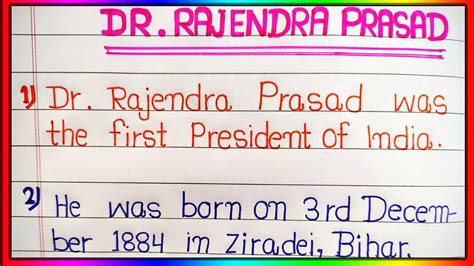 DR. RAJENDRA PRASAD
1) Dr. Rajendra Prasad was
the first President of India.
2) He was born on 3rd Decem-
ber 1884 in Ziradei, Bihar.